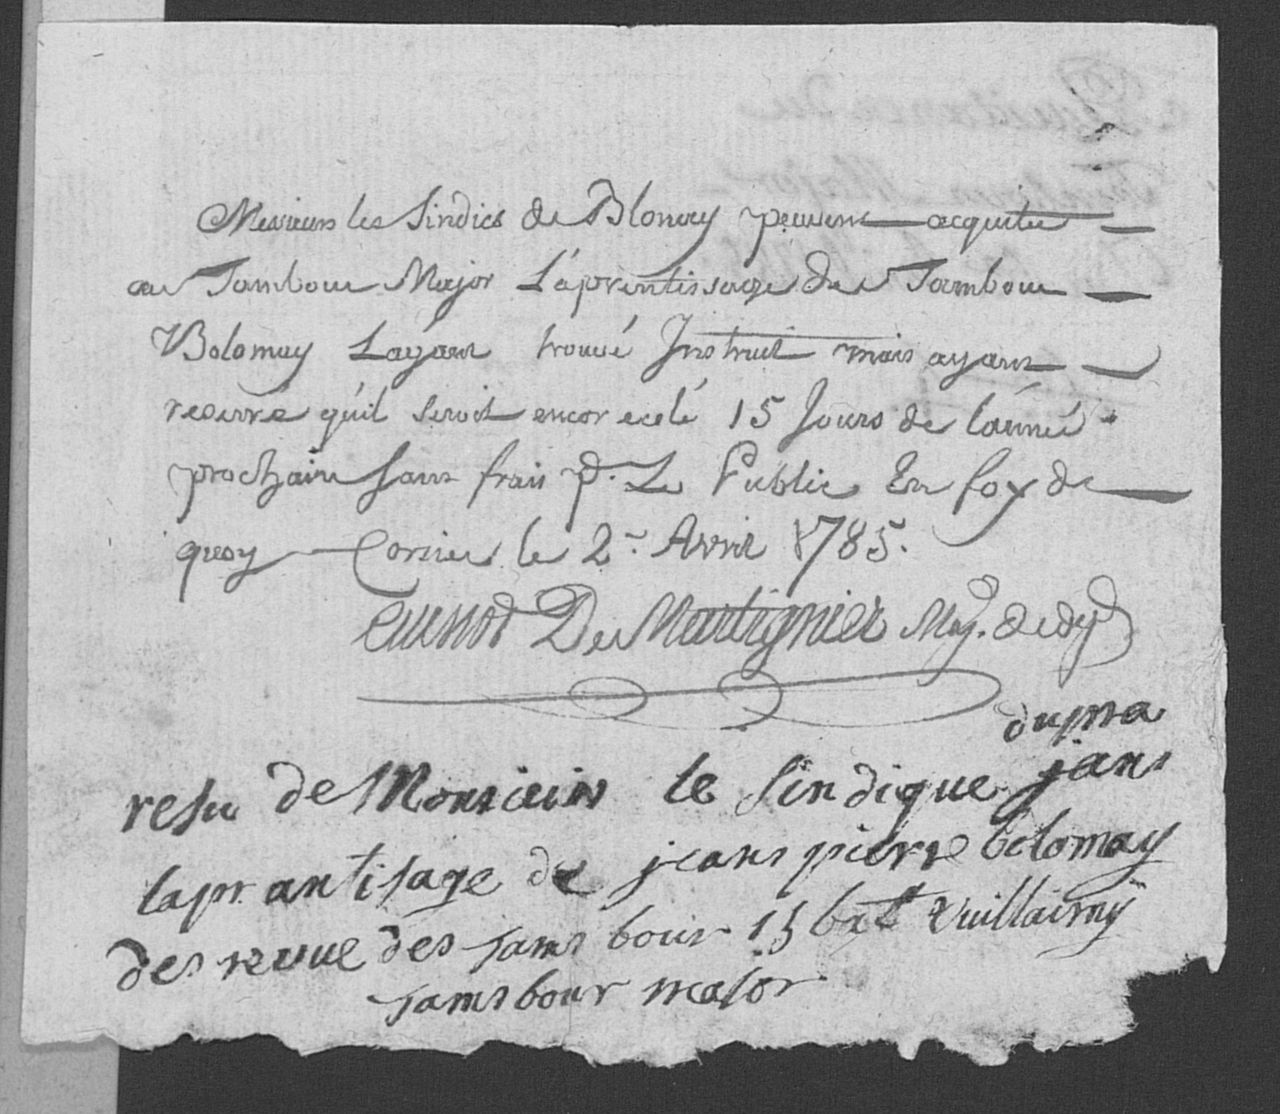 Messieurs les Sindics de Blonay peuvent acquiter
au Tambour Major L'aprentissage du Tambour
Bolomay Layant trouvé Instruit mais ayant
reservé qu'il seroit encor ecolé 15 Jours de l'année
prochaine sans frais pr. Le Public En foy de
quoy Corsier le 2e Avril 1785.
De Martignier Maj. de dpt
resu de Monsieur le sindique jans dupra
laprantisage de jeans pierre bolomay
des revue des tams bour 15 bat vuillaimÿ
tams bour maior